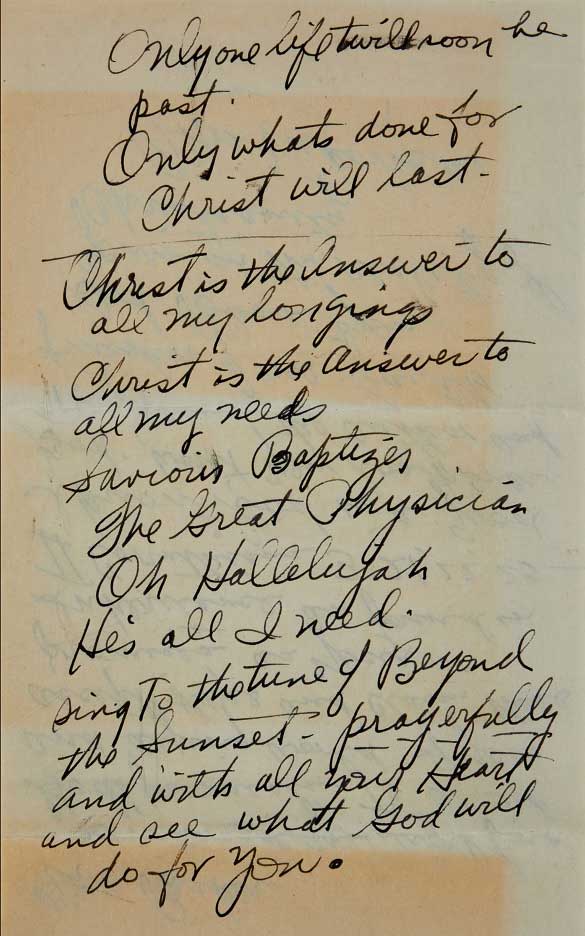 Only one life twill soon be
past.
Only whats done for
Christ will last-
Christ is the Answer to
all my longings
Christ is the Answer to
all my needs
Saviour Baptizes
The Great Physician
Oh Hallelujah
He's all I need.
sing To the tune of Beyond
the Sunset- prayerfully
and with all your Heart
and see what God will
do for You.